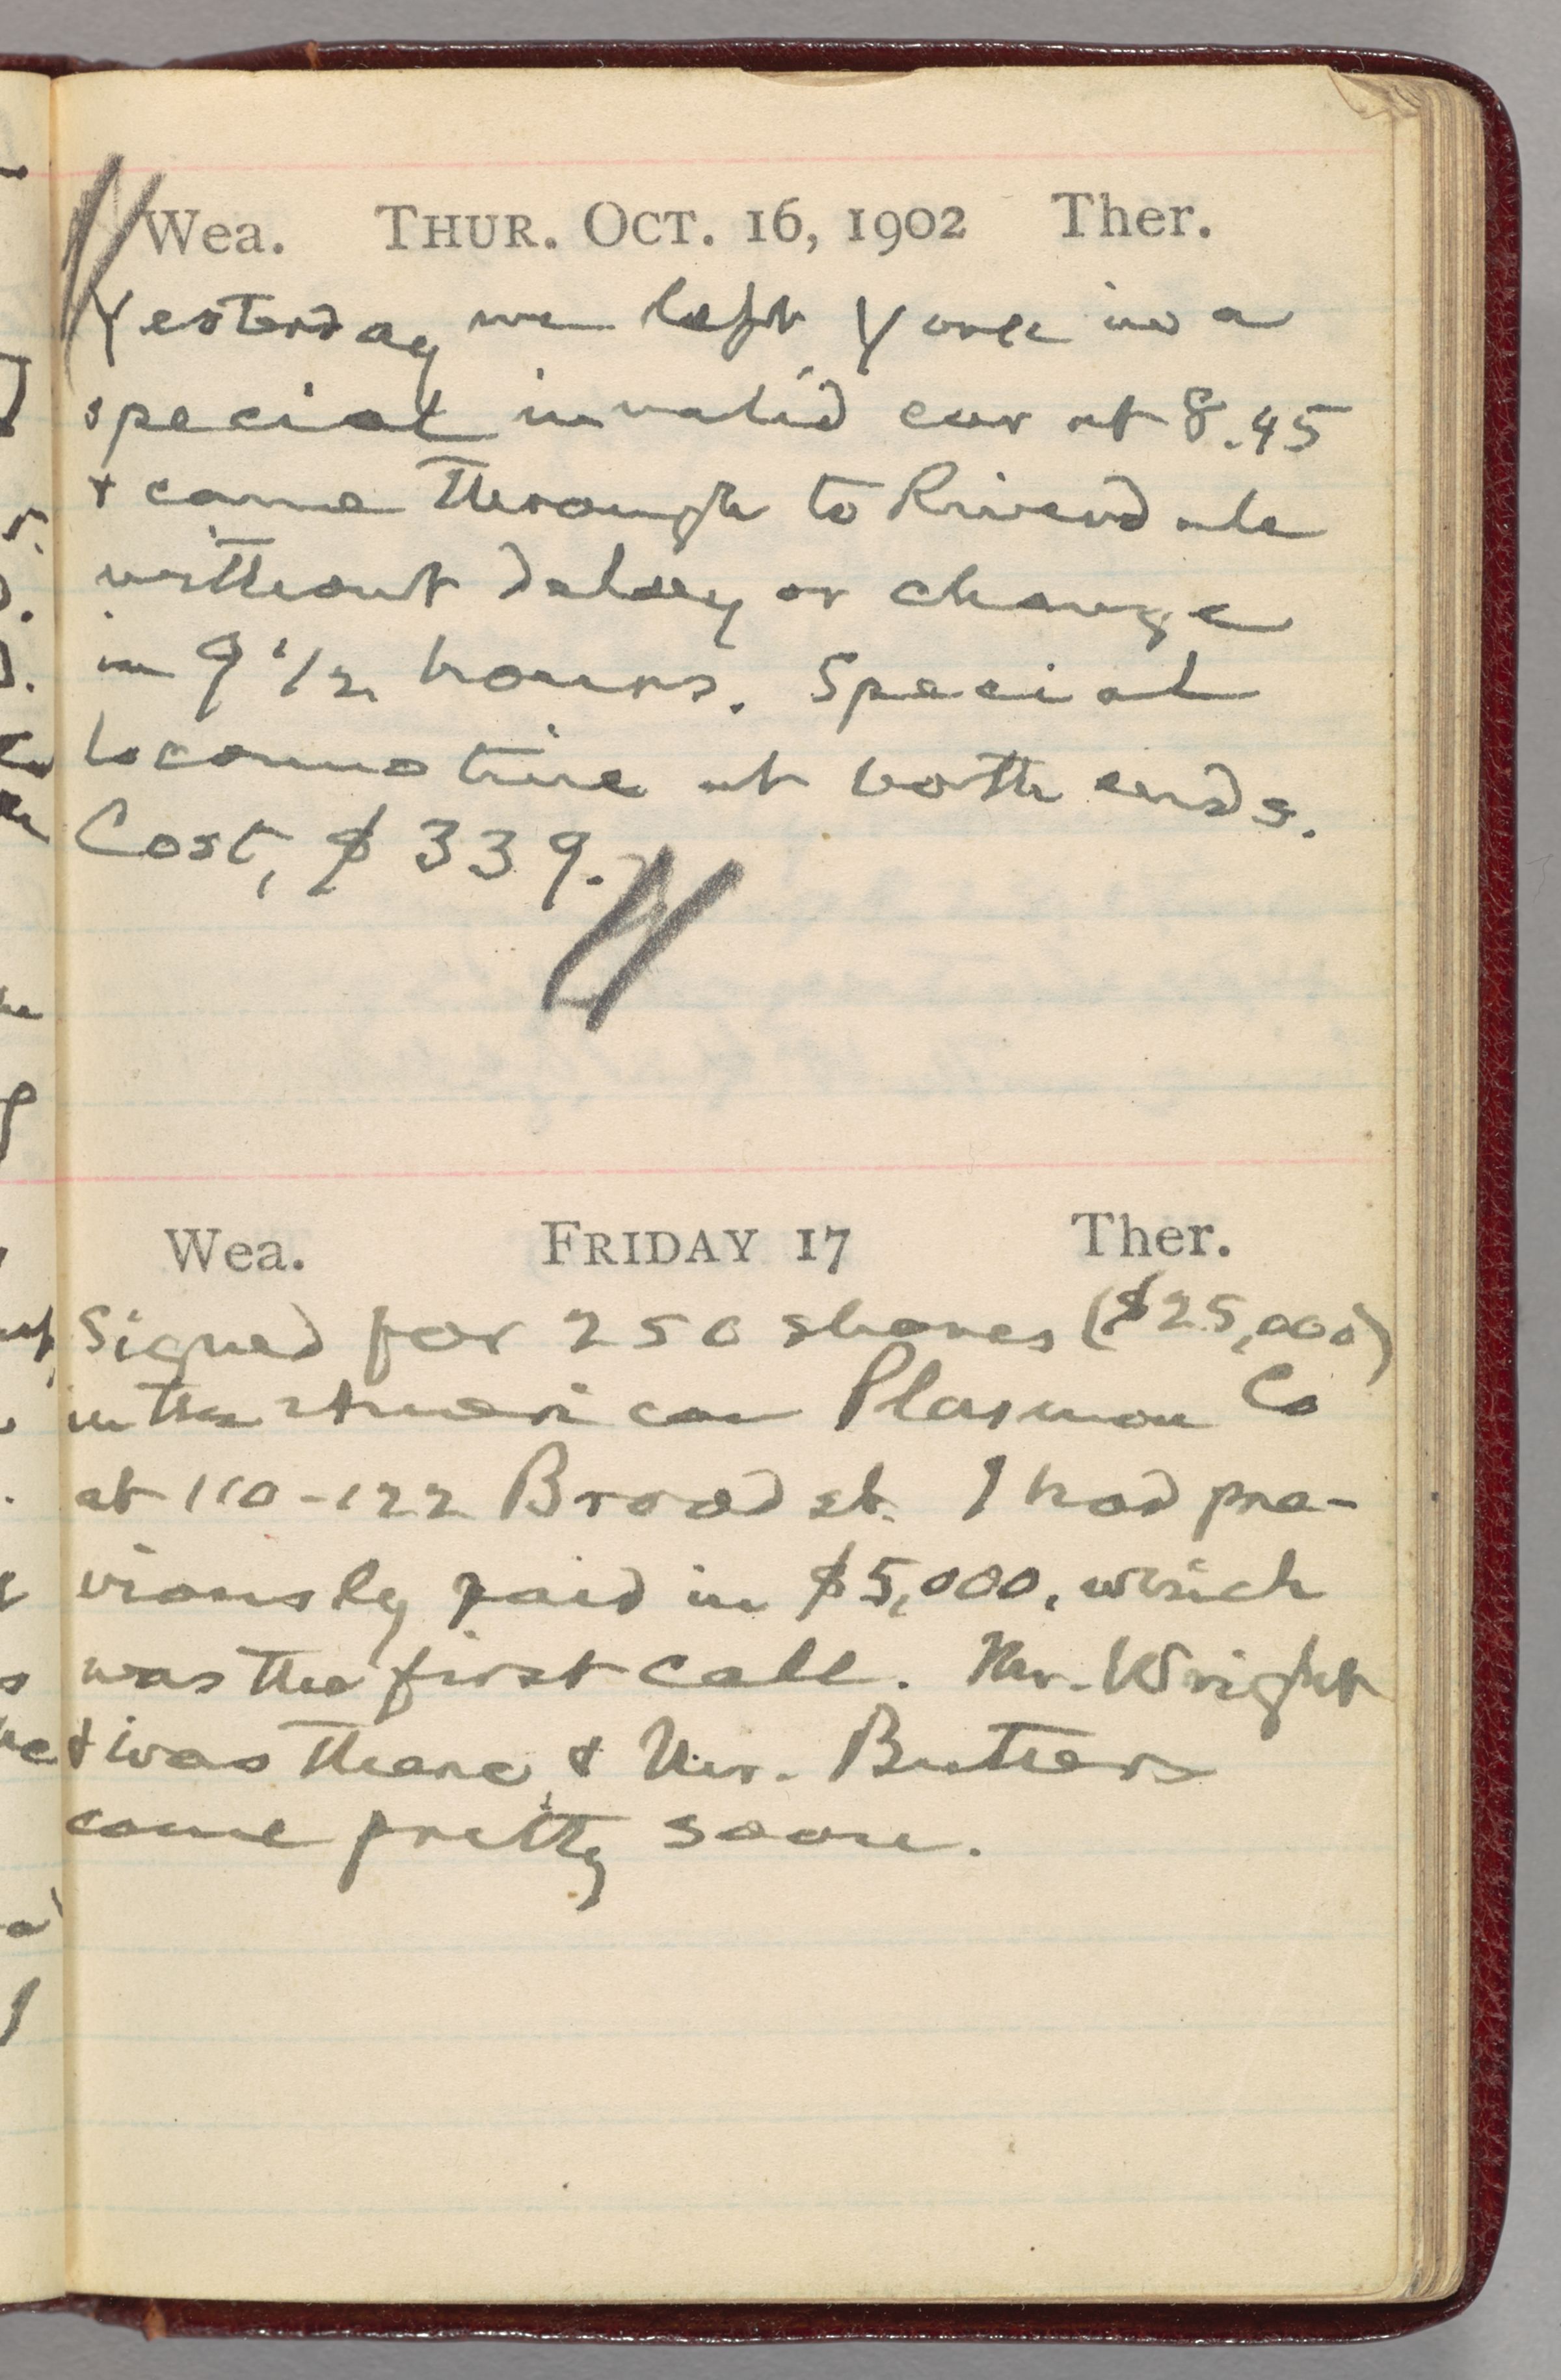 Wea. THUR. OCT. 16, 1902 Ther.
Yesterday we left York in a
special invalid car at 8.45
& came through to Riverdale
without delay or change
in 9 1/2 hours. Special
locomotive at both ends.
Cost, $339.
Wea. FRIDAY 17 Ther.
Signed for 250 shares ($25,000)
in the American Plasmon Co
at 110-122 Broad st. I had pre-
viously paid in $5,000, which
was the first call. Mr. Wright
& was there, & Mr. Butters
came pretty soon.